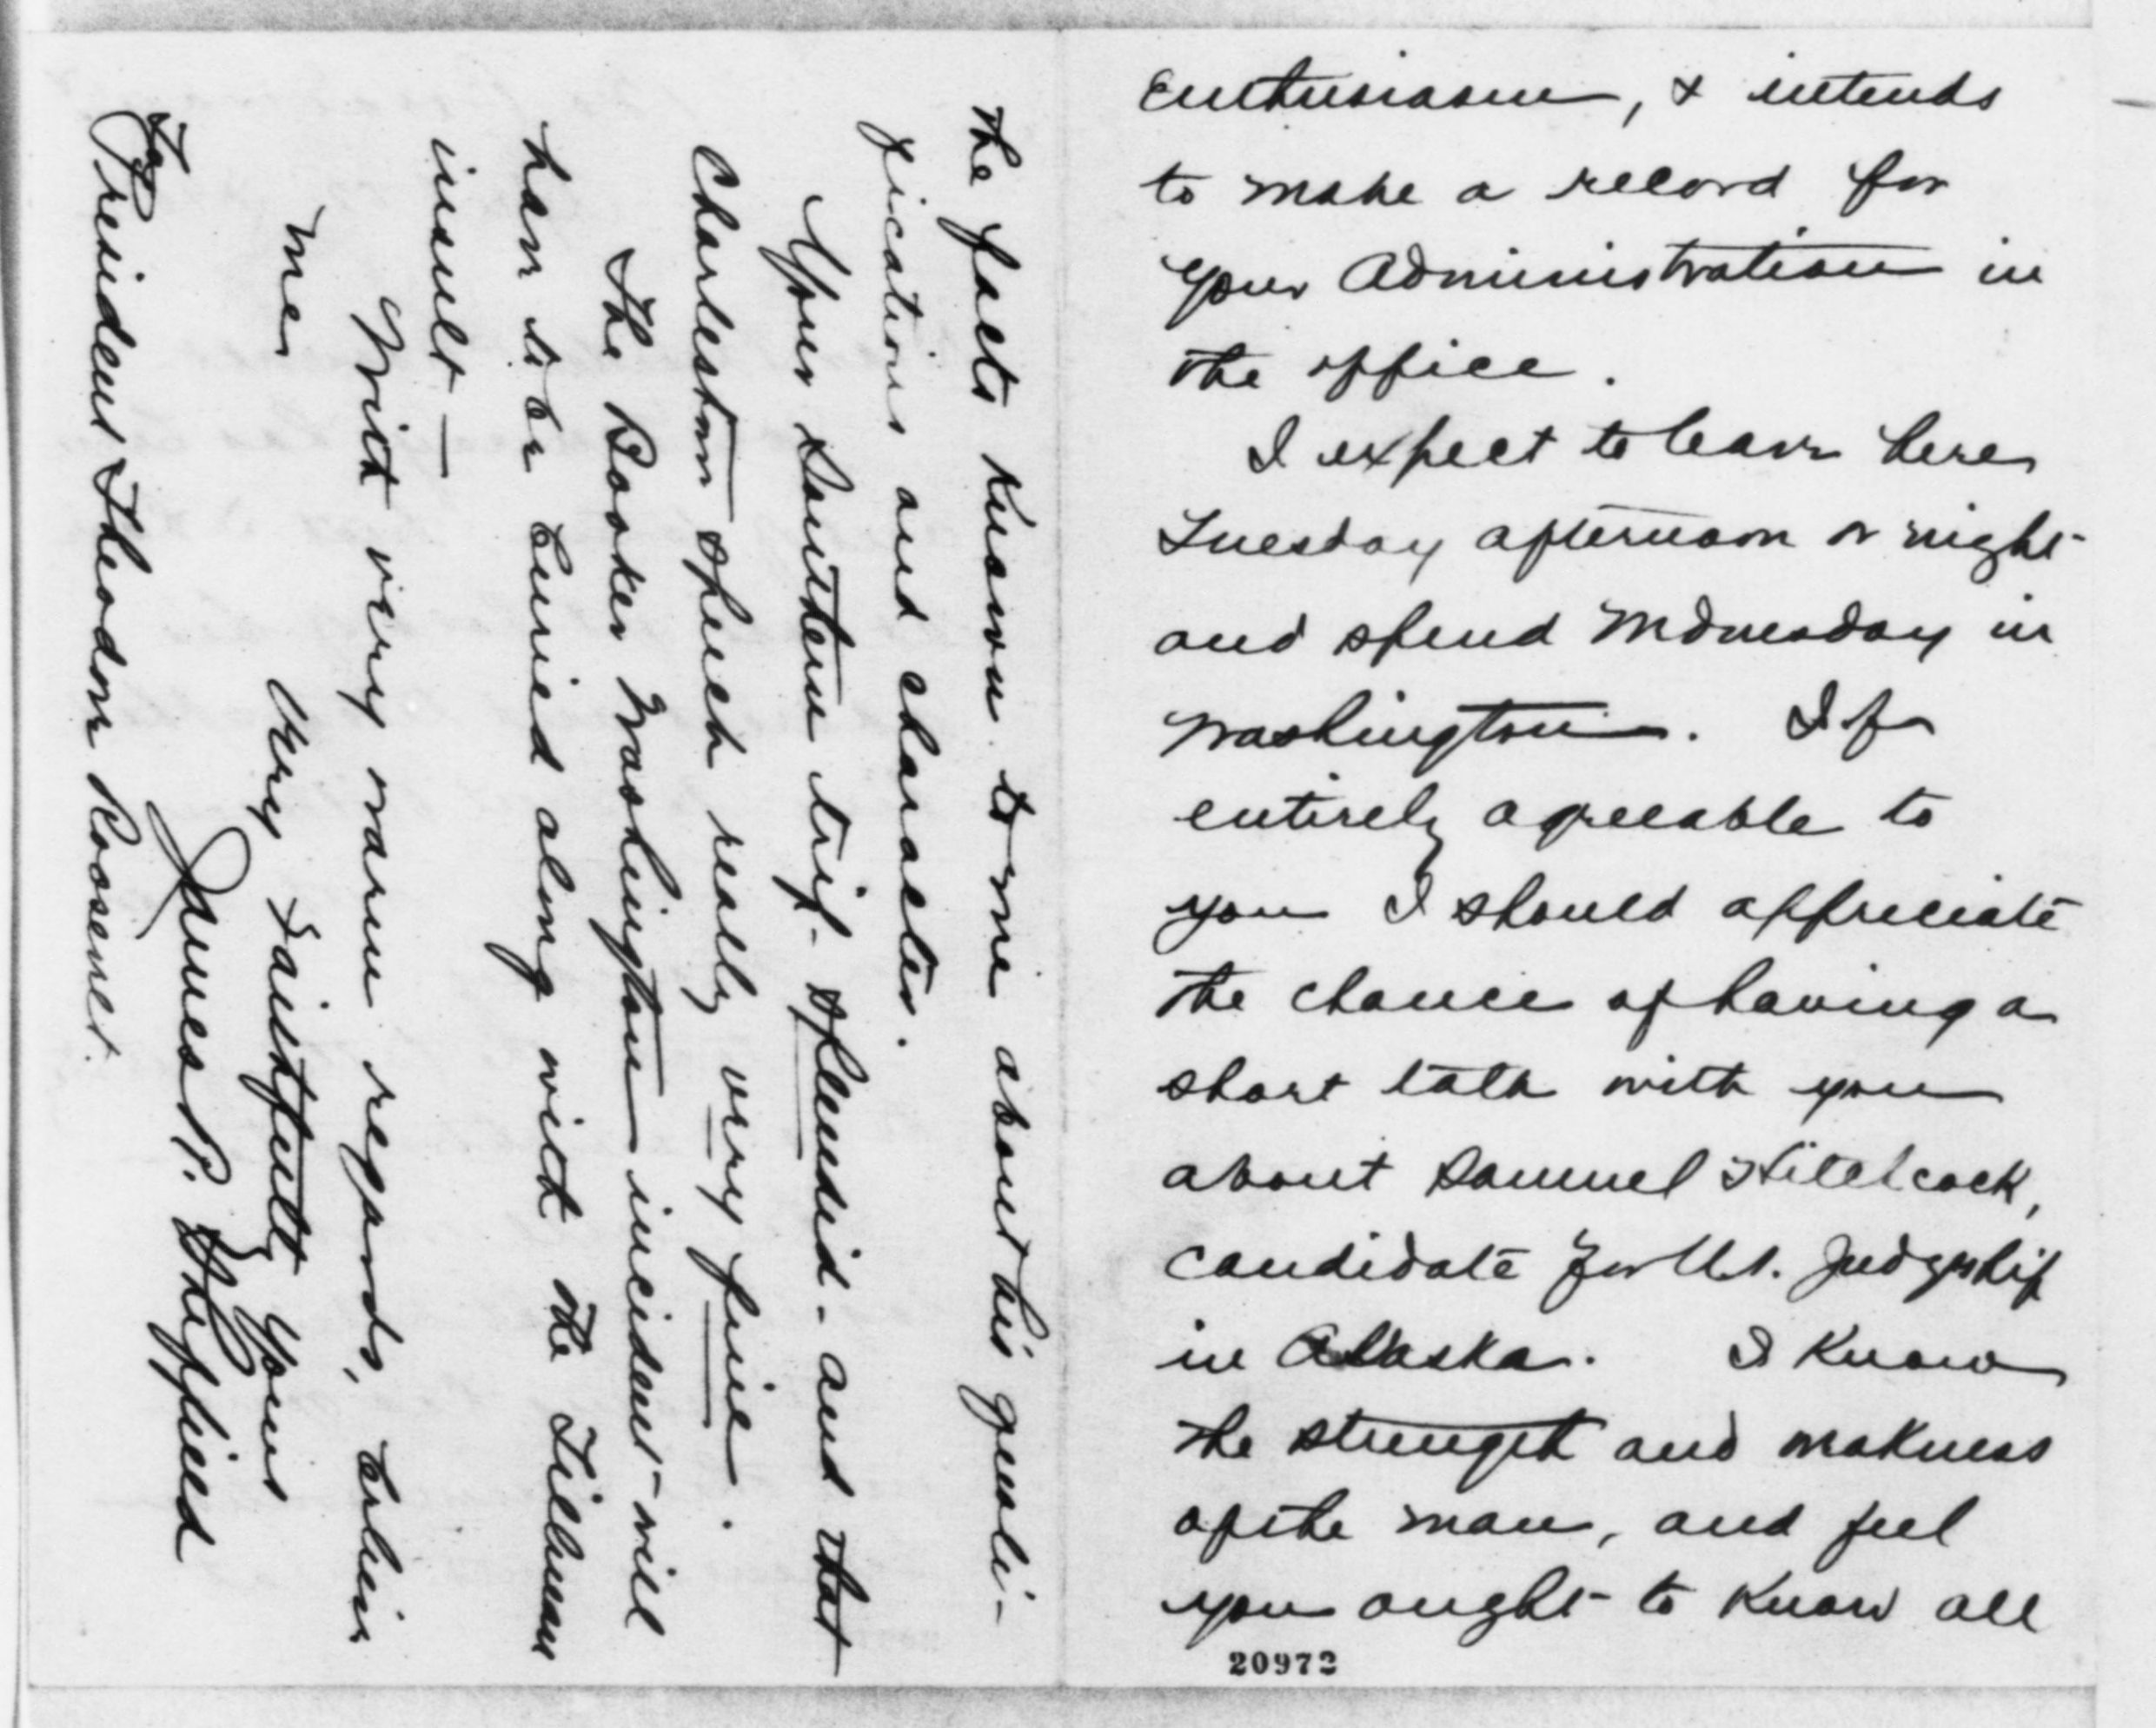 enthusiasm, & intends
to make a record for
your Administration in
the office.
I expect to leave here
Tuesday afternoon or night
and spend Wednesday in
Washington. If
entirely agreeable to
you I should appreciate
the chance of having a
short talk with you
about Samuel Hitchcock,
candidate for U.S. Judgeship
in Alaska. I know
the strength and weakness
of the man, and feel
you ought to know all
20972
the facts known to me about his quali-
fications and character.
Your Southern trip - splendid - and that
Charleston speech really very fine.
The Booker Washington incident will
have to be buried along with the Tillman
insult —
With very warm regards, believe
me
Very Faithfully Yours
James R. Sheffield
To
President Theodore Roosevelt.